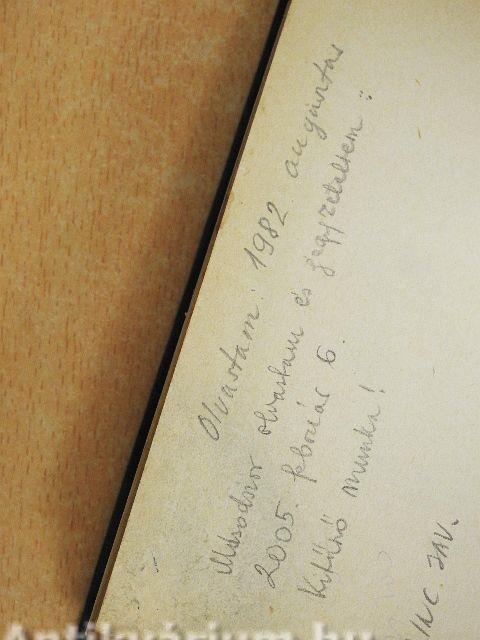 Olvastam: 1982 augusztus
Másodszor olvastam és jegyzeteltem:
2005. február 6.
Kitűnő munka!
Antikvárium.hu